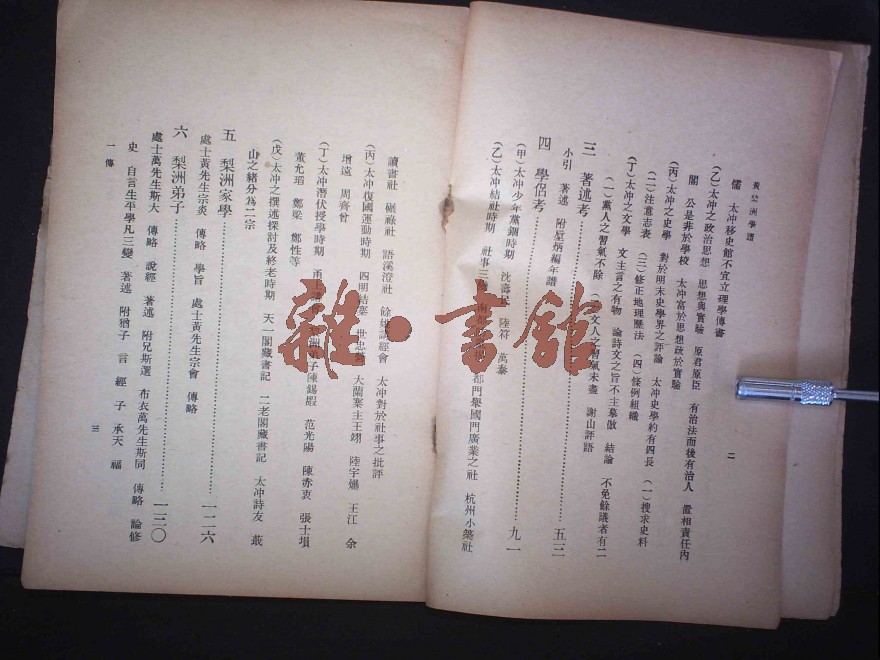 黃梨洲學譜
二
儒 太冲移史館不宜立理學傳書
(乙)太冲之政治思想 思想與實驗 原君原臣 有治法而後有治人 置相責任內
閣 公是非於學校 太冲富於思想疏於實驗
(丙)太冲之史學 對於明末史學界之評論 太冲史學約有四長 (一)搜求史料
(二)注意志表 (三)修正地理曆法 (四)條例組織
(丁)太冲之文學 文主言之有物 論詩文之旨不主摹倣 結論 不免餘議者有二
(一)黨人之習氣不除 文人之習氣未盡 謝山評語
三 著述考 五三
小引 著述 附屋炳編年譜
四 學侶考 九一
(甲)太冲少年黨錮時期 沈壽民 陸符 萬泰
(乙)太冲結社時期 社事三 都門舉國門廣業之社 杭州小築社
讀書社 硯祿社 語溪澄社 餘姚 經會 太冲對於社事之批評
(丙)太冲復國運動時期 四明結寨 世忠 大蘭寨主王翊 陸宇 王江 余
增遠 周齊曾
(丁)太冲潛伏授學時期 甬上 弟子陳錫嘏 范光陽 陳赤衷 張士塤
董允瑫 鄭梁 鄭性等
(戊)太冲之撰述探討及終老時期 天一閣藏書記 二老閣藏書記 太冲詩友 蕺
山之緒分爲二宗
五 梨洲家學 一二六
處士黃先生宗炎 傳略 學旨 處士黃先生宗會 傳略
六 梨洲弟子 一三〇
處士萬先生斯大 傳略 說經 著述 附兄斯選 布衣萬先生斯同 傳略 論修
史 自言生平學凡三變 著述 附猶子 言 經 子 承天 福
一 傳
三
雜·書館